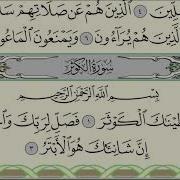 ـلِّينَ ٤ ٱلَّذِينَ هُمْ عَن صَلَاتِهِمْ سَا
ٱلَّذِينَ هُمْ يُرَآءُونَ ٦ وَيَمْنَعُونَ ٱلْمَاعُو
سُورَةُ الكَوْثَرِ
بِسْمِ ٱللَّهِ ٱلرَّحْمَٰنِ ٱلرَّحِيمِ
ـطَيْنَٰكَ ٱلْكَوْثَرَ ١ فَصَلِّ لِرَبِّكَ وَٱ
إِنَّ شَانِئَكَ هُوَ ٱلْأَبْتَرُ ٣